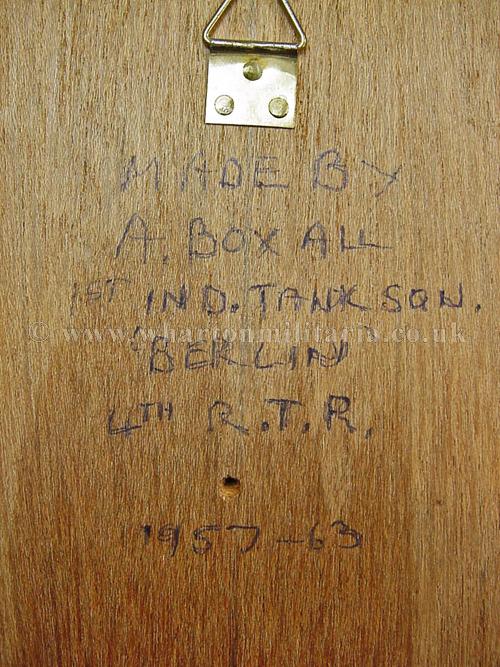 MADE BY
A. BOXALL
1ST IND. TANK SQN.
© www.whartonmilitaria.co.uk
BERLIN
4TH R.T.R.
1957-63